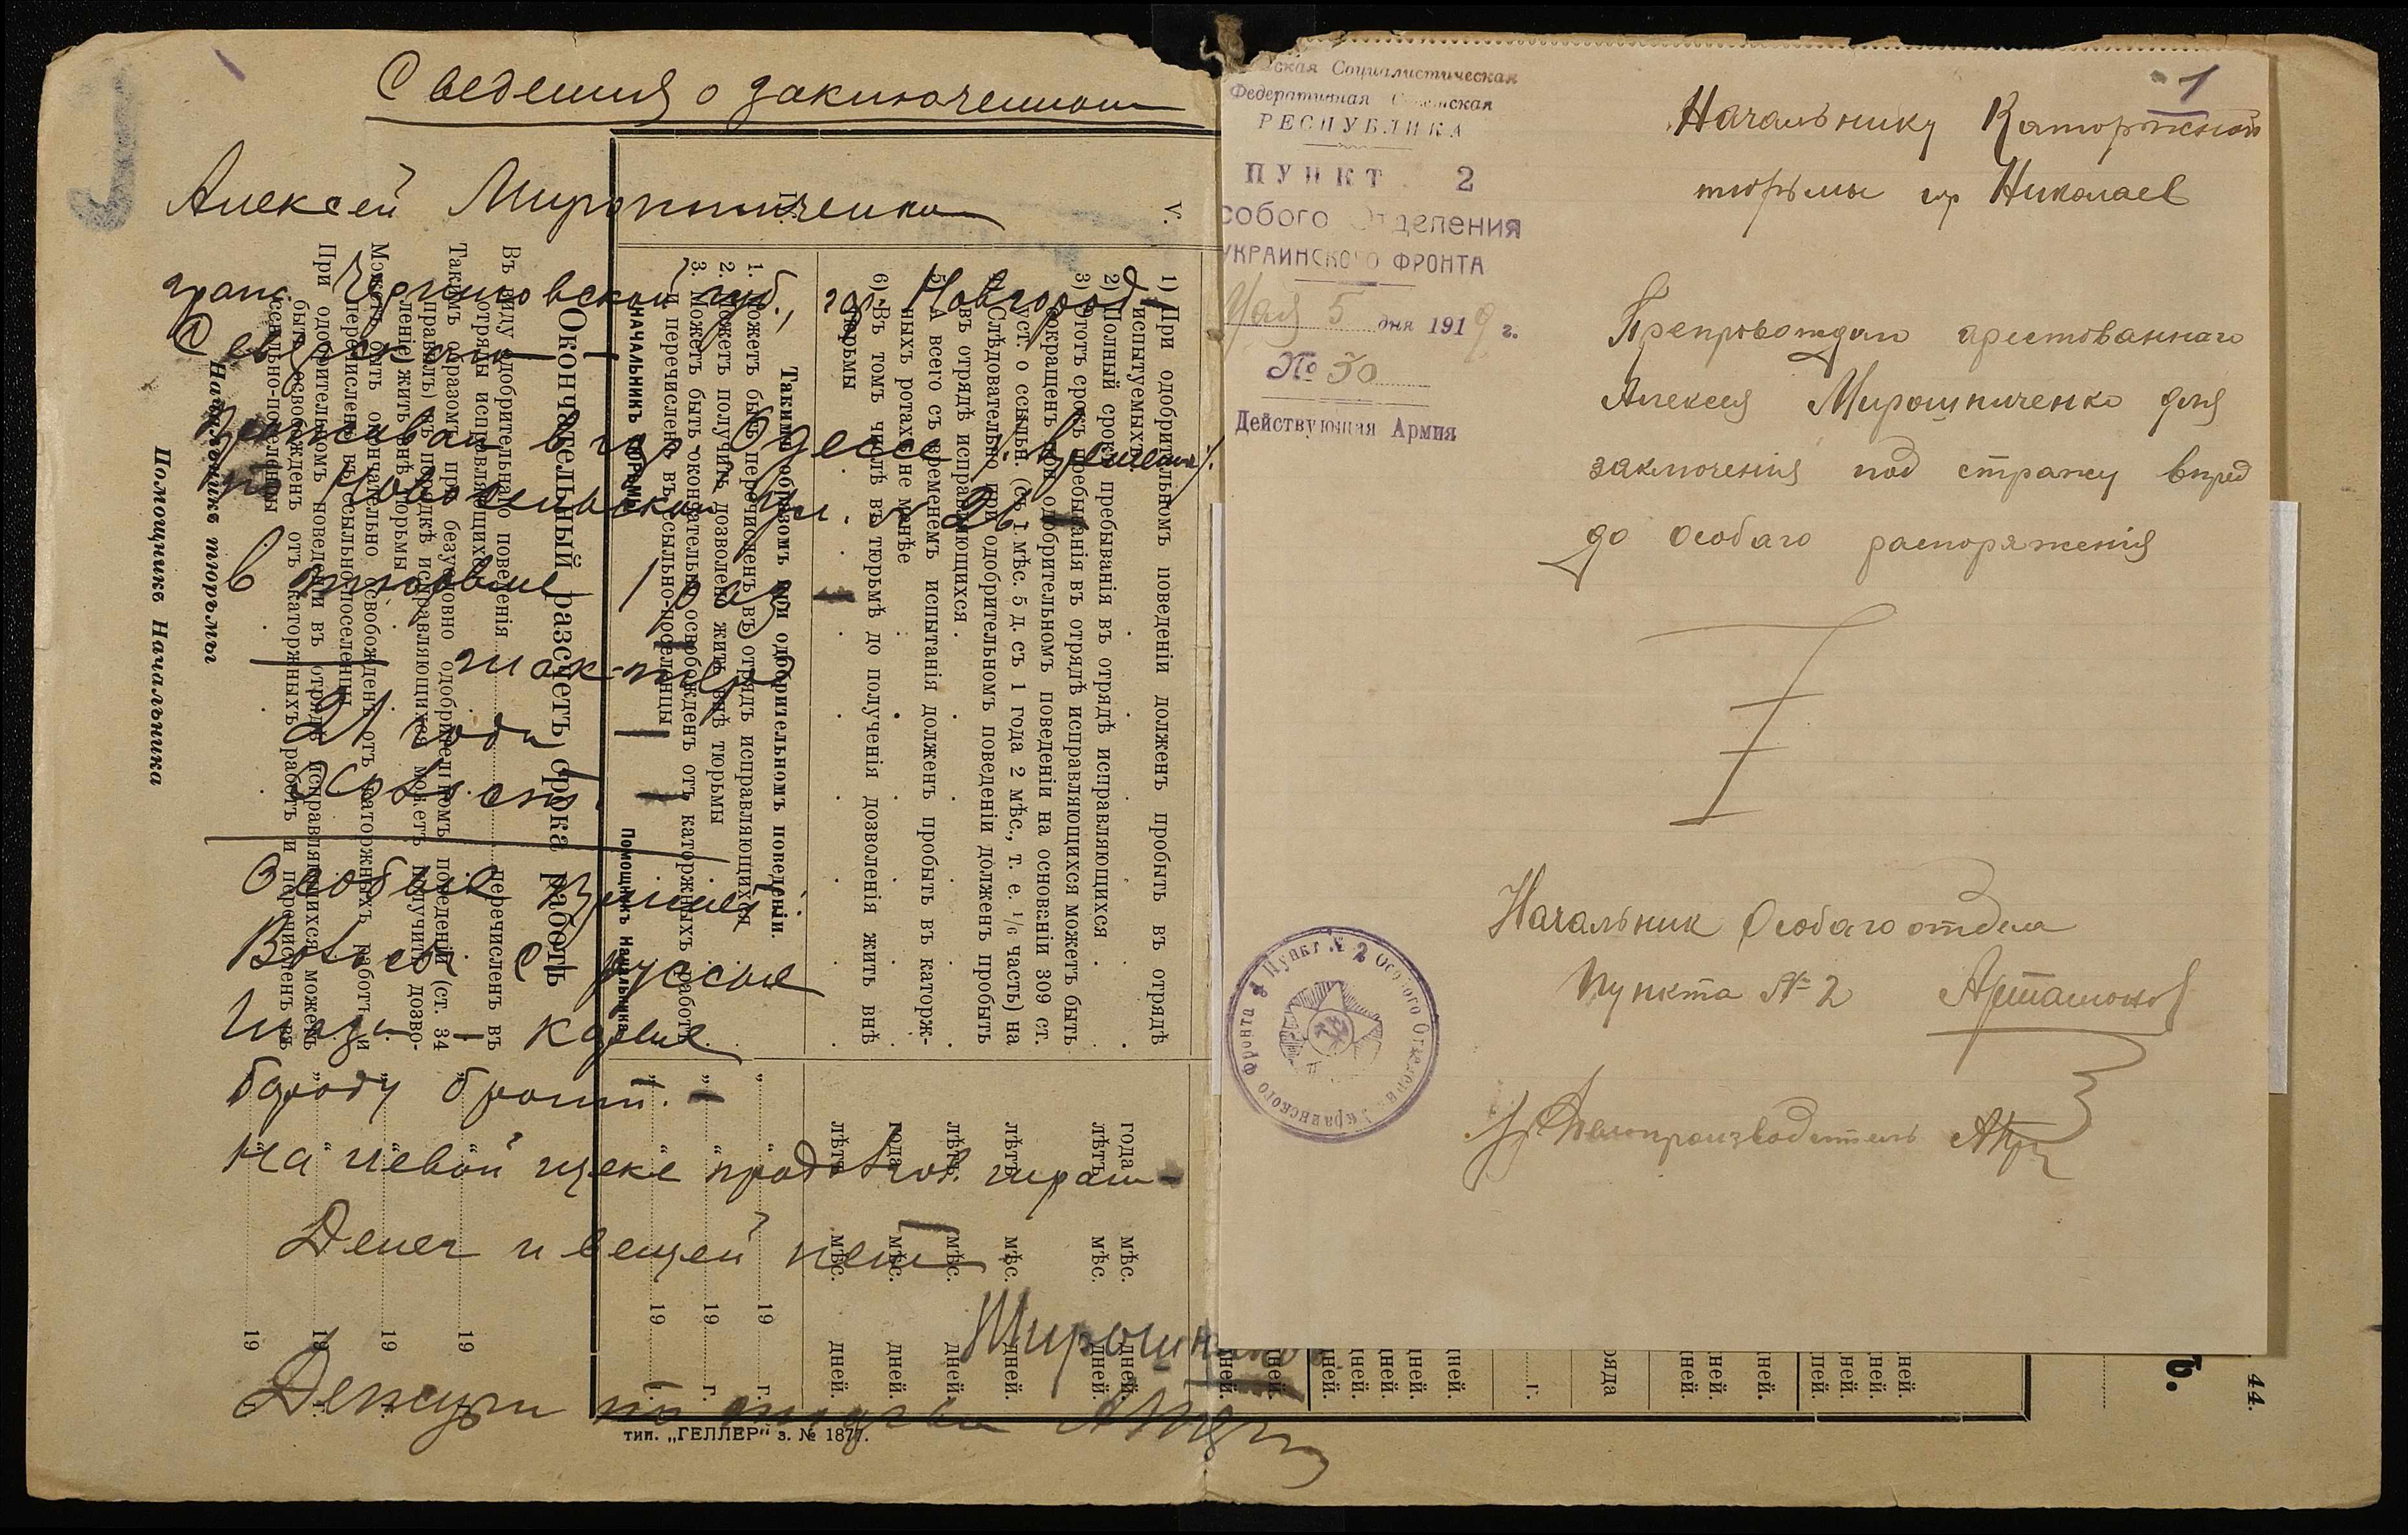 Сведения о заключенном
Алексей Мирошниченко
гражд. Черниговской губ., гор. Новгород-
Северска
Проживал в гор. Одессе /: времен :/
по ул. № 26
В тюрьме 1 раз
21 года
Холост.
Особые
Волосы русые
Глаза — карие
бороду броит.
На левой щеке продолгов. шрам
Денег и вещей нет
Мирошниченко
Дежурн
V.
1) При одобрительномъ поведеніи долженъ пробыть въ отрядѣ
испытуемыхъ
2) Полный срокъ пребыванія въ отрядѣ исправляющихся
3) Этотъ срокъ пребыванія въ отрядѣ исправляющихся можетъ быть
сокращенъ при одобрительномъ поведеніи на основаніи 309 ст.
уст. о ссыльн. (съ 1 мѣс. 5 д. съ 1 года 2 мѣс., т. е. 1/6 часть) на
Слѣдовательно при одобрительномъ поведеніи долженъ пробыть
въ отрядѣ исправляющихся
5) А всего съ временемъ испытанія долженъ пробыть въ каторж-
ныхъ ротахъ не менѣе
6) Въ томъ числѣ въ тюрьмѣ до полученія дозволенія жить внѣ
тюрьмы
года мѣс. дней.
лѣтъ мѣс. дней.
лѣтъ мѣс. дней.
лѣтъ мѣс. дней.
года мѣс. дней.
лѣтъ мѣс. дней.
Такимъ образомъ при одобрительномъ поведеніи.
1. Можетъ быть перечисленъ въ отрядъ исправляющихся
2. Можетъ получить дозволеніе жить внѣ тюрьмы
3. Можетъ быть окончательно освобожденъ отъ каторжныхъ работъ
и перечисленъ въ ссыльно-поселенцы
19 г.
19 г.
19 г.
НАЧАЛЬНИКЪ ТЮРЬМЫ
Помощникъ Начальника
Окончательный разсчетъ срока работъ
Въ виду одобрительнаго поведенія перечисленъ въ
отрядъ исправляющихся
Такимъ образомъ при безусловно одобрительномъ поведеніи (ст. 34
правилъ) въ порядкѣ исправляющихся можетъ получить дозво-
леніе жить внѣ тюрьмы
Можетъ быть окончательно освобожденъ отъ каторжныхъ работъ и
перечисленъ въ ссыльнопоселенцы
При одобрительномъ поведеніи въ отрядѣ исправляющихся можетъ
быть освобожденъ отъ каторжныхъ работъ и перечисленъ въ
ссыльно-поселенцы
19
19
19
19
Начальникъ тюрьмы
Помощникъ Начальника
тип. „ГЕЛЛЕР“ з. № 1877.
1
Социалистическая
Федеративная Советская
РЕСПУБЛИКА
ПУНКТ 2
Особого Отделения
УКРАИНСКОГО ФРОНТА
Мая 5 дня 1919 г.
№ 30
Действующая Армия
Начальнику Каторжной
тюрьмы гор Николаев
Препровождаю арестованнаго
Алексея Мирошниченко для
заключения под стражу впред
до особаго распоряжения
Начальник Особаго отдела
Пункта № 2 Артамонов
Делопроизводитель
Пункт № 2 Особого Отделения Украинского Фронта
44.